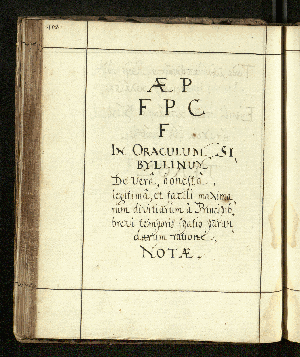 ÆP
F P C
F
IN ORACULUM SI
BYLLINUM
De verâ, honestâ,
legitimâ, et facili maxima
rum divitiarum à Principe,
brevi temporis spatio
ratione
NOTÆ.